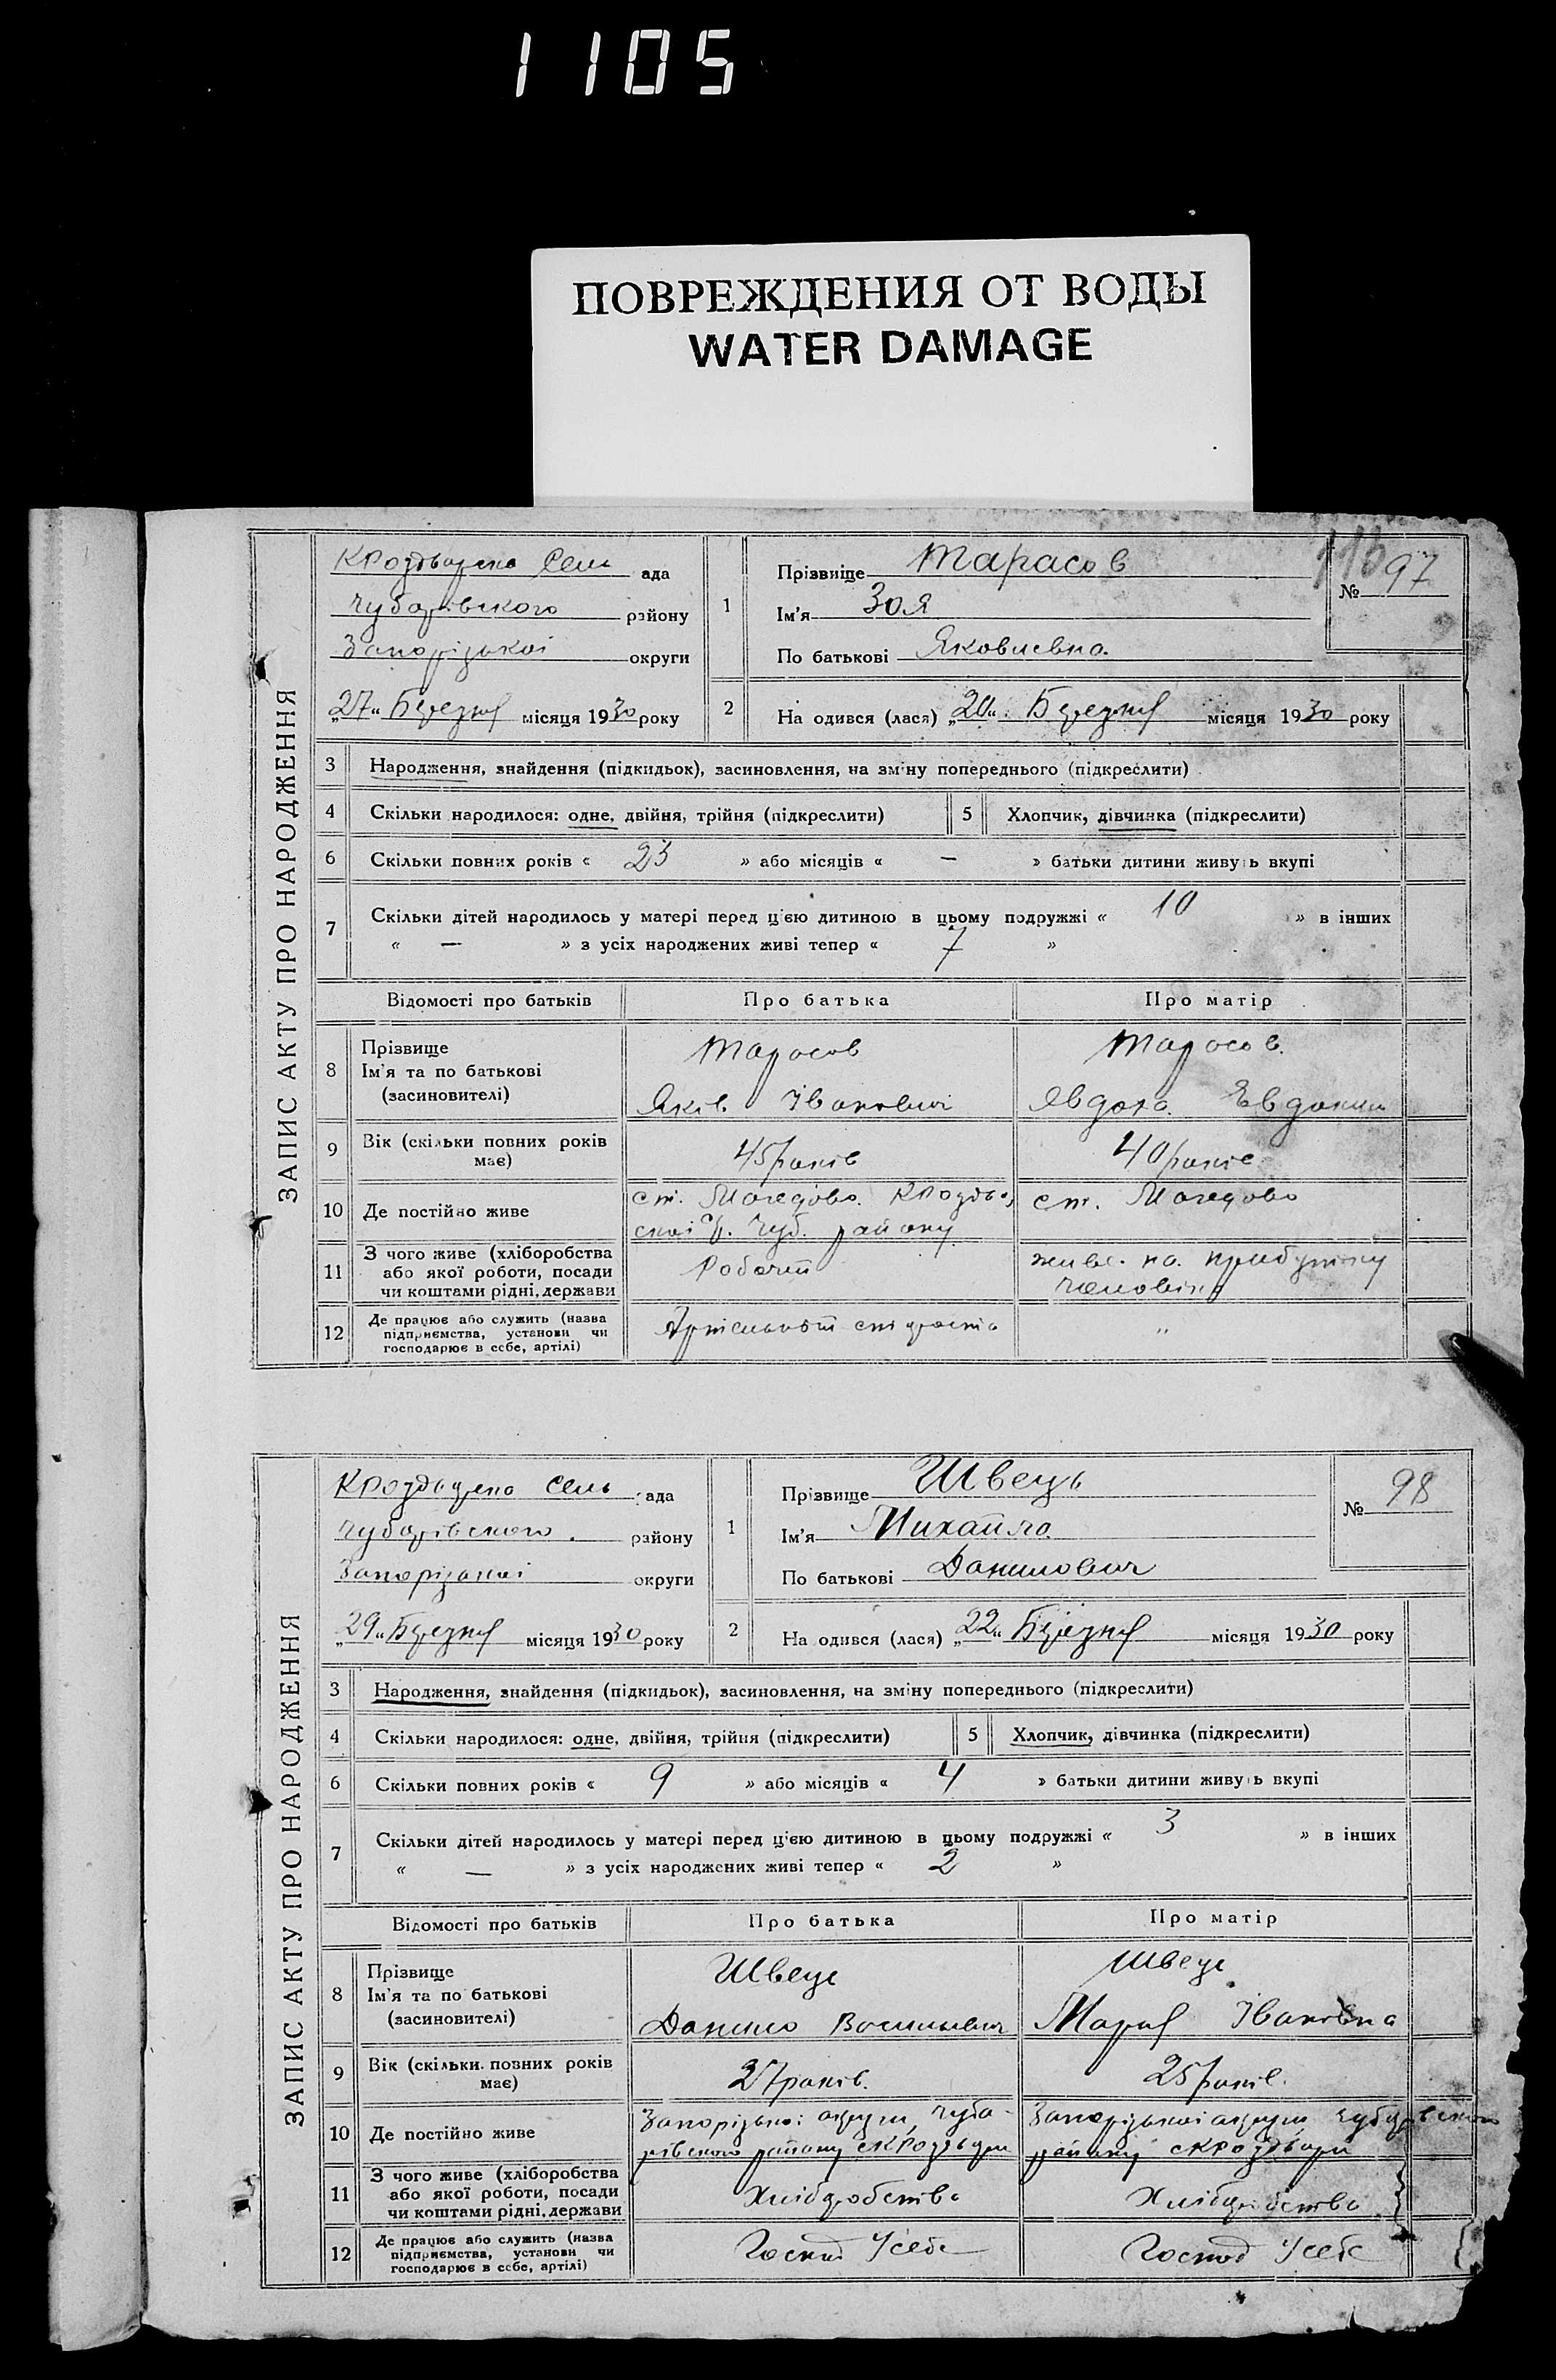 1105
ПОВРЕЖДЕНИЯ ОТ ВОДЫ
WATER DAMAGE
ЗАПИС АКТУ ПРО НАРОДЖЕННЯ
Сель ада
Чубарівського району
Запорізької округи
„27“ Березня місяця 1930 року
1
Прізвище Тарасов
Ім'я Зоя
По батькові Яковлевна
№ 97
2
На одився (лася) „20“ Березня місяця 1930 року
3 Народження, знайдення (підкидьок), засиновлення, на зміну попереднього (підкреслити)
4 Скільки народилося: одне, двійня, трійня (підкреслити) 5 Хлопчик, дівчинка (підкреслити)
6 Скільки повних років « 23 » або місяців « — » батьки дитини живуть вкупі
7 Скільки дітей народилось у матері перед цією дитиною в цьому подружжі « 10 » в інших
« — » з усіх народжених живі тепер « 7 »
Відомості про батьків Про батька Про матір
8 Прізвище
Ім'я та по батькові
(засиновителі)
Тарасов
Яків Іванович
Тарасов
Явдоха
9 Вік (скільки повних років має)
45 років
40 років
10 Де постійно живе
ст. Магедово.
Чуб. району
ст. Магедово
11 З чого живе (хліборобства
або якої роботи, посади
чи коштами рідні, держави
Робочий
живе на прибутки
чоловіка
12 Де працює або служить (назва
підприємства, установи чи
господарює в себе, артілі)
"
ЗАПИС АКТУ ПРО НАРОДЖЕННЯ
Сель ада
Чубарівського району
Запорізької округи
„29“ Березня місяця 1930 року
1
Прізвище Швець
Ім'я Михайло
По батькові Данилович
№ 98
2
На одився (лася) „22“ Березня місяця 1930 року
3 Народження, знайдення (підкидьок), засиновлення, на зміну попереднього (підкреслити)
4 Скільки народилося: одне, двійня, трійня (підкреслити) 5 Хлопчик, дівчинка (підкреслити)
6 Скільки повних років « 9 » або місяців « 4 » батьки дитини живуть вкупі
7 Скільки дітей народилось у матері перед цією дитиною в цьому подружжі « 3 » в інших
« — » з усіх народжених живі тепер « 2 »
Відомості про батьків Про батька Про матір
8 Прізвище
Ім'я та по батькові
(засиновителі)
Швець
Данило Васильевич
Швець
Мария Івановна
9 Вік (скільки повних років має)
27 років.
25 років.
10 Де постійно живе
Запорізької округи, Чуба-
рівського району
Запорізької округи, Чубарівського
району
11 З чого живе (хліборобства
або якої роботи, посади
чи коштами рідні, держави
Хліборобство
Хліборобство
12 Де працює або служить (назва
підприємства, установи чи
господарює в себе, артілі)
Господ Усебе
Господ Усебе